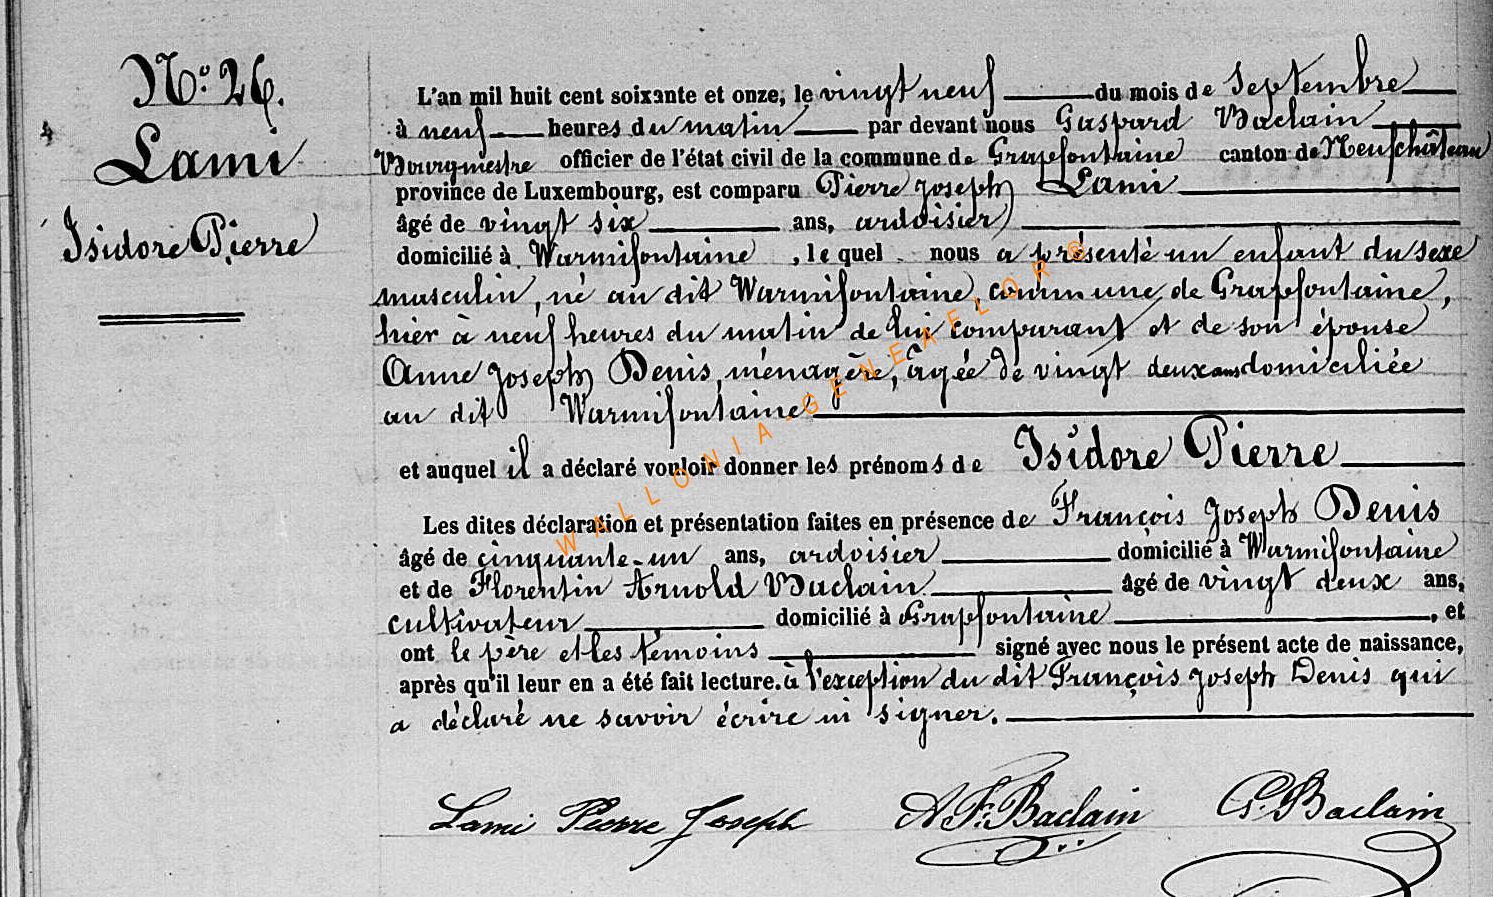 N° 26.
Lami
Isidore Pierre
L'an mil huit cent soixante et onze, le vingt neuf du mois de Septembre
à neuf heures du matin par devant nous Gaspard Baclain
Bourgmestre officier de l'état civil de la commune de Grapfontaine canton de Neufchâteau
province de Luxembourg, est comparu Pierre Joseph Lami
âgé de vingt six ans, ardoisier
domicilié à Warmifontaine, lequel nous a présenté un enfant du sexe
masculin, né au dit Warmifontaine, commune de Grapfontaine,
hier à neuf heures du matin de lui comparant et de son épouse
Anne Joseph Denis, ménagère, âgée de vingt deux ans domiciliée
au dit Warmifontaine
et auquel il a déclaré vouloir donner les prénoms de Isidore Pierre
Les dites déclaration et présentation faites en présence de François Joseph Denis
âgé de cinquante-un ans, ardoisier domicilié à Warmifontaine
et de Florentin Arnold Baclain âgé de vingt deux ans,
cultivateur domicilié à Grapfontaine, et
ont le père et les témoins signé avec nous le présent acte de naissance,
après qu'il leur en a été fait lecture. à l'exception du dit François Joseph Denis qui
a déclaré ne savoir écrire ni signer.
Lami Pierre Joseph A. F. Baclain G. Baclain
WALLONIA-GENEAFLOR ®